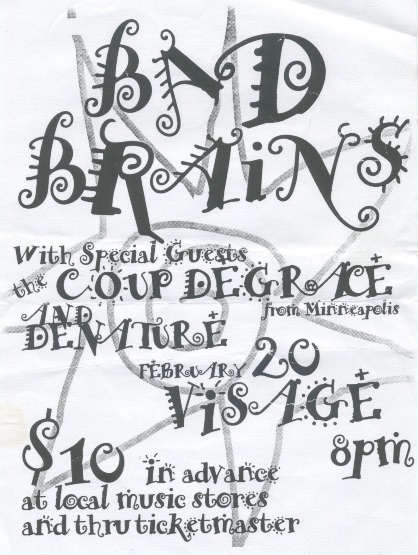 BAD
BRAiNS
With Special Guests
the COUP DE GRACE
from Minneapolis
AND
DENATURE
FEBRUARY 20
ViSAGE
8pm
$10 in advance
at local music stores
and thru ticketmaster